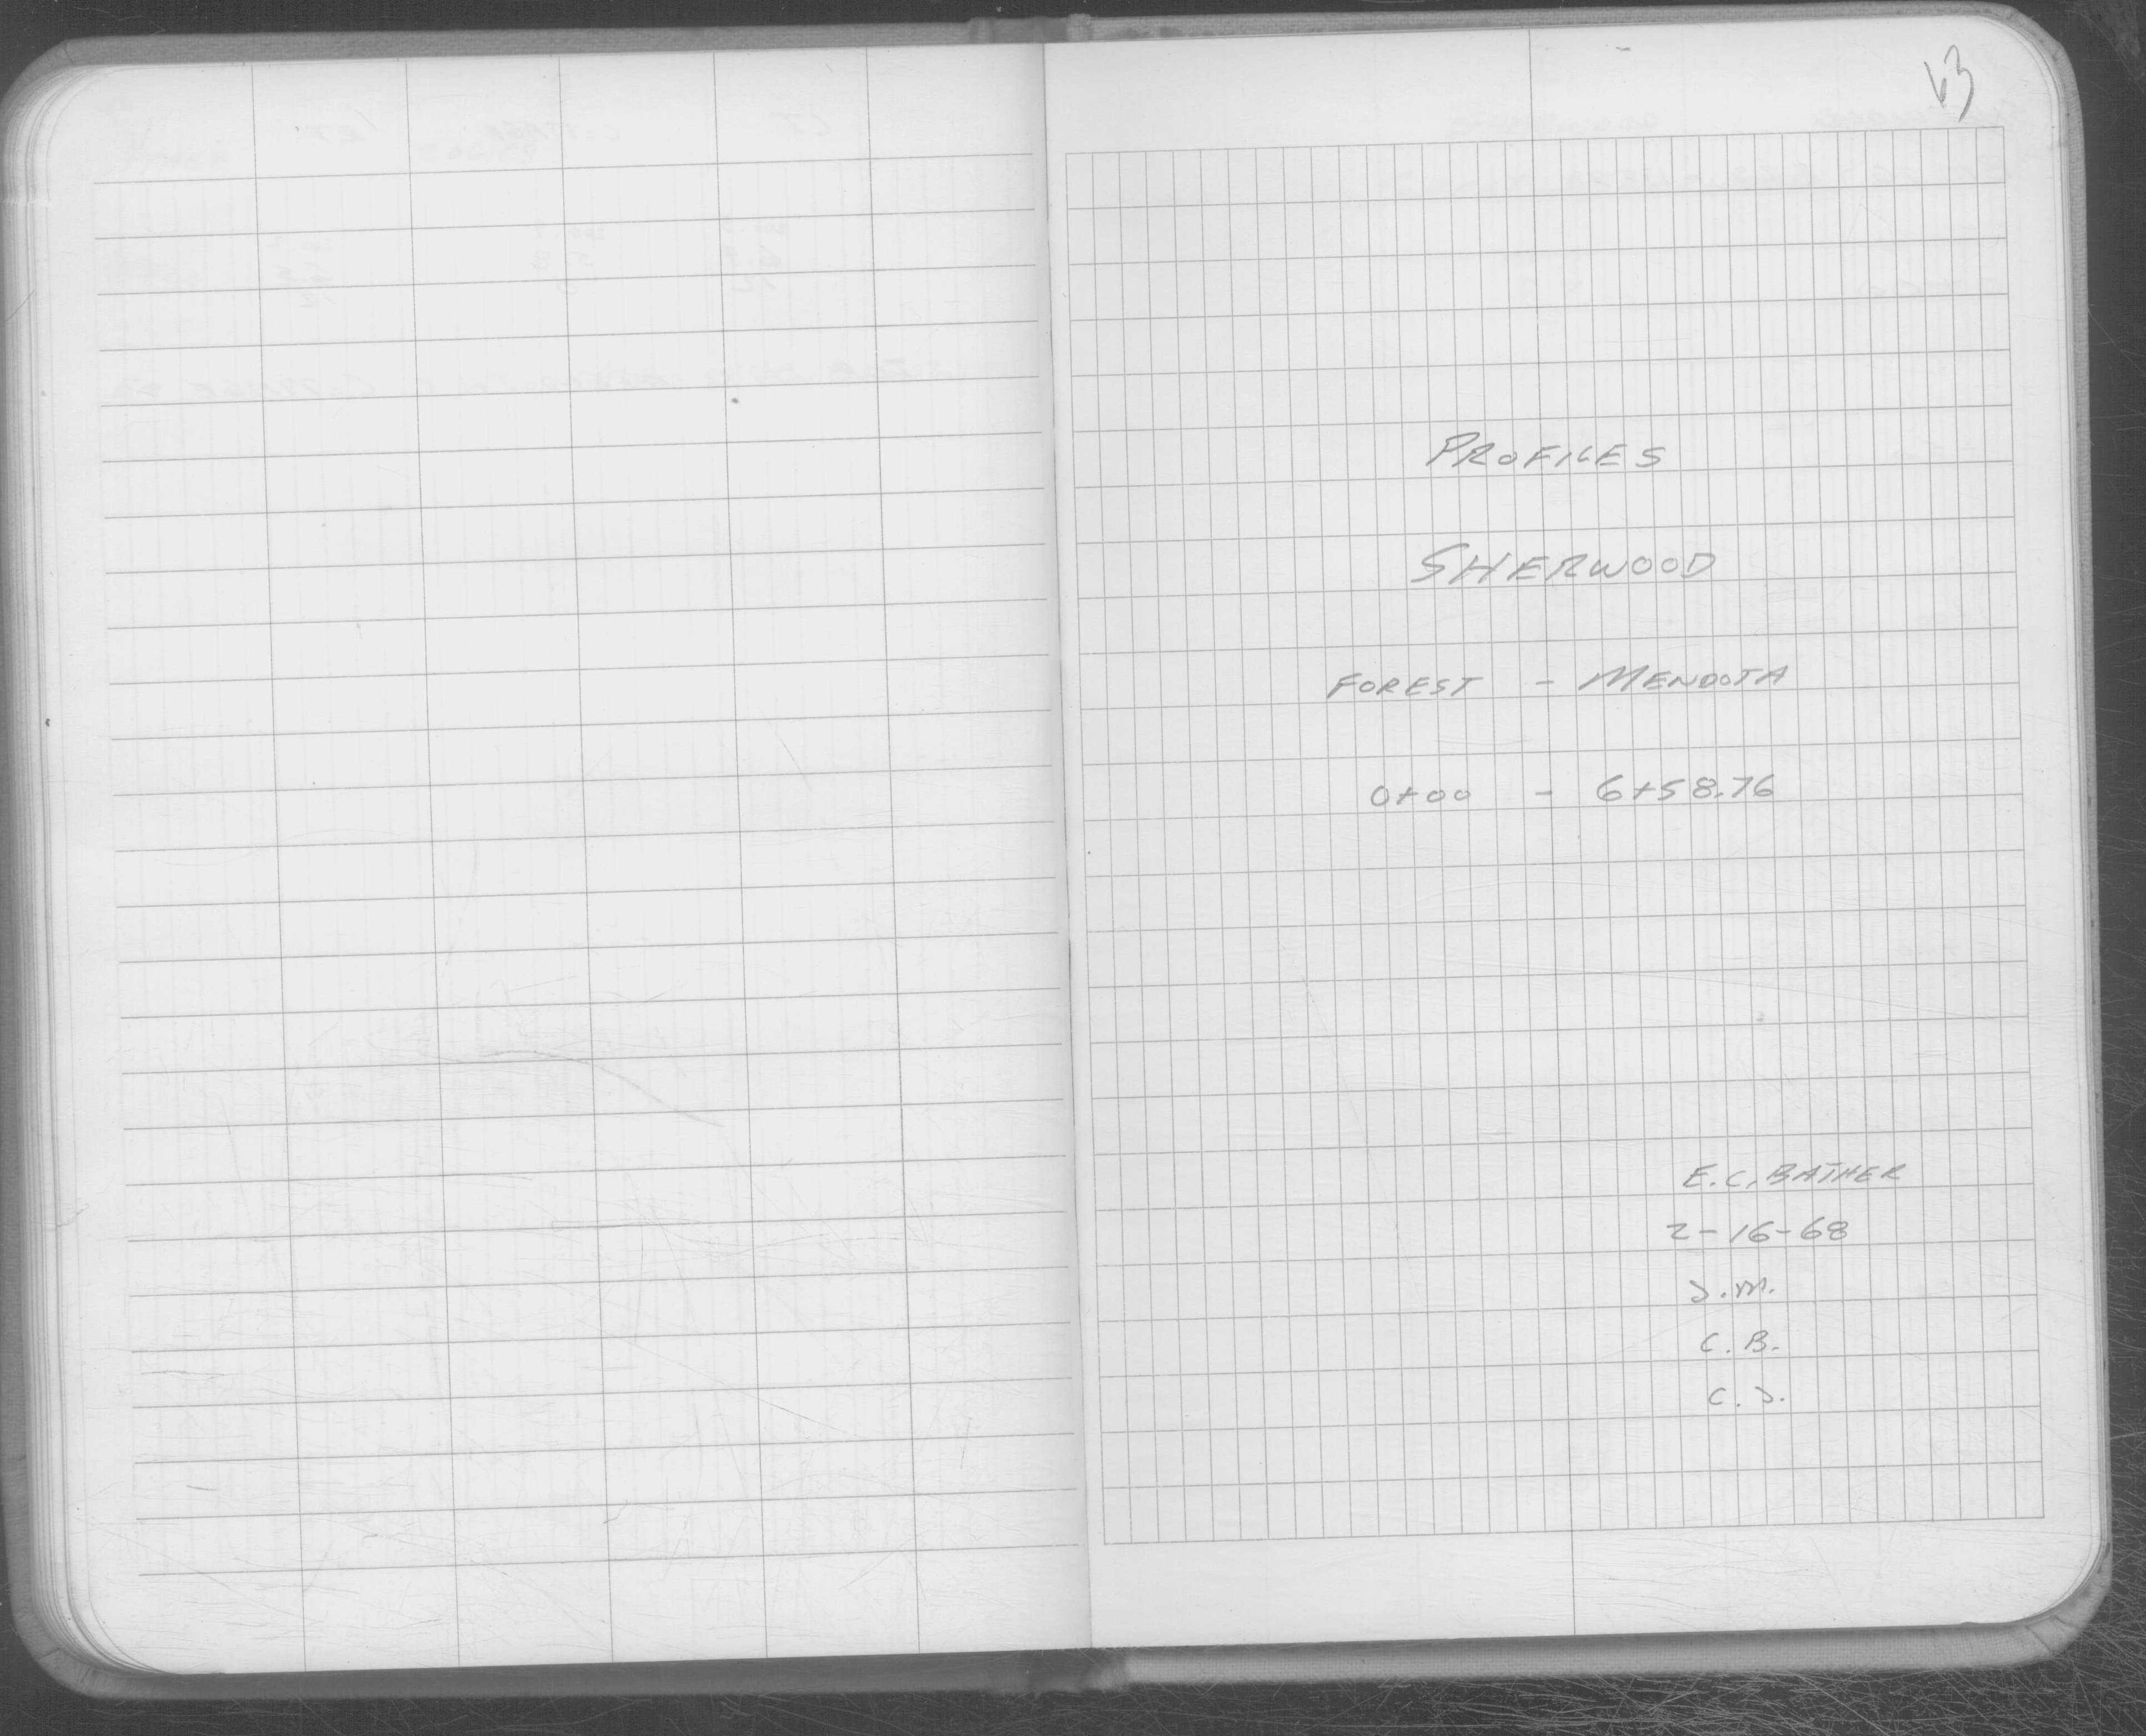 63
PROFILES
SHERWOOD
FOREST - MENDOTA
0+00 - 6+58.76
E.C. BATHER
2-16-68
J.M.
C.B.
C.J.